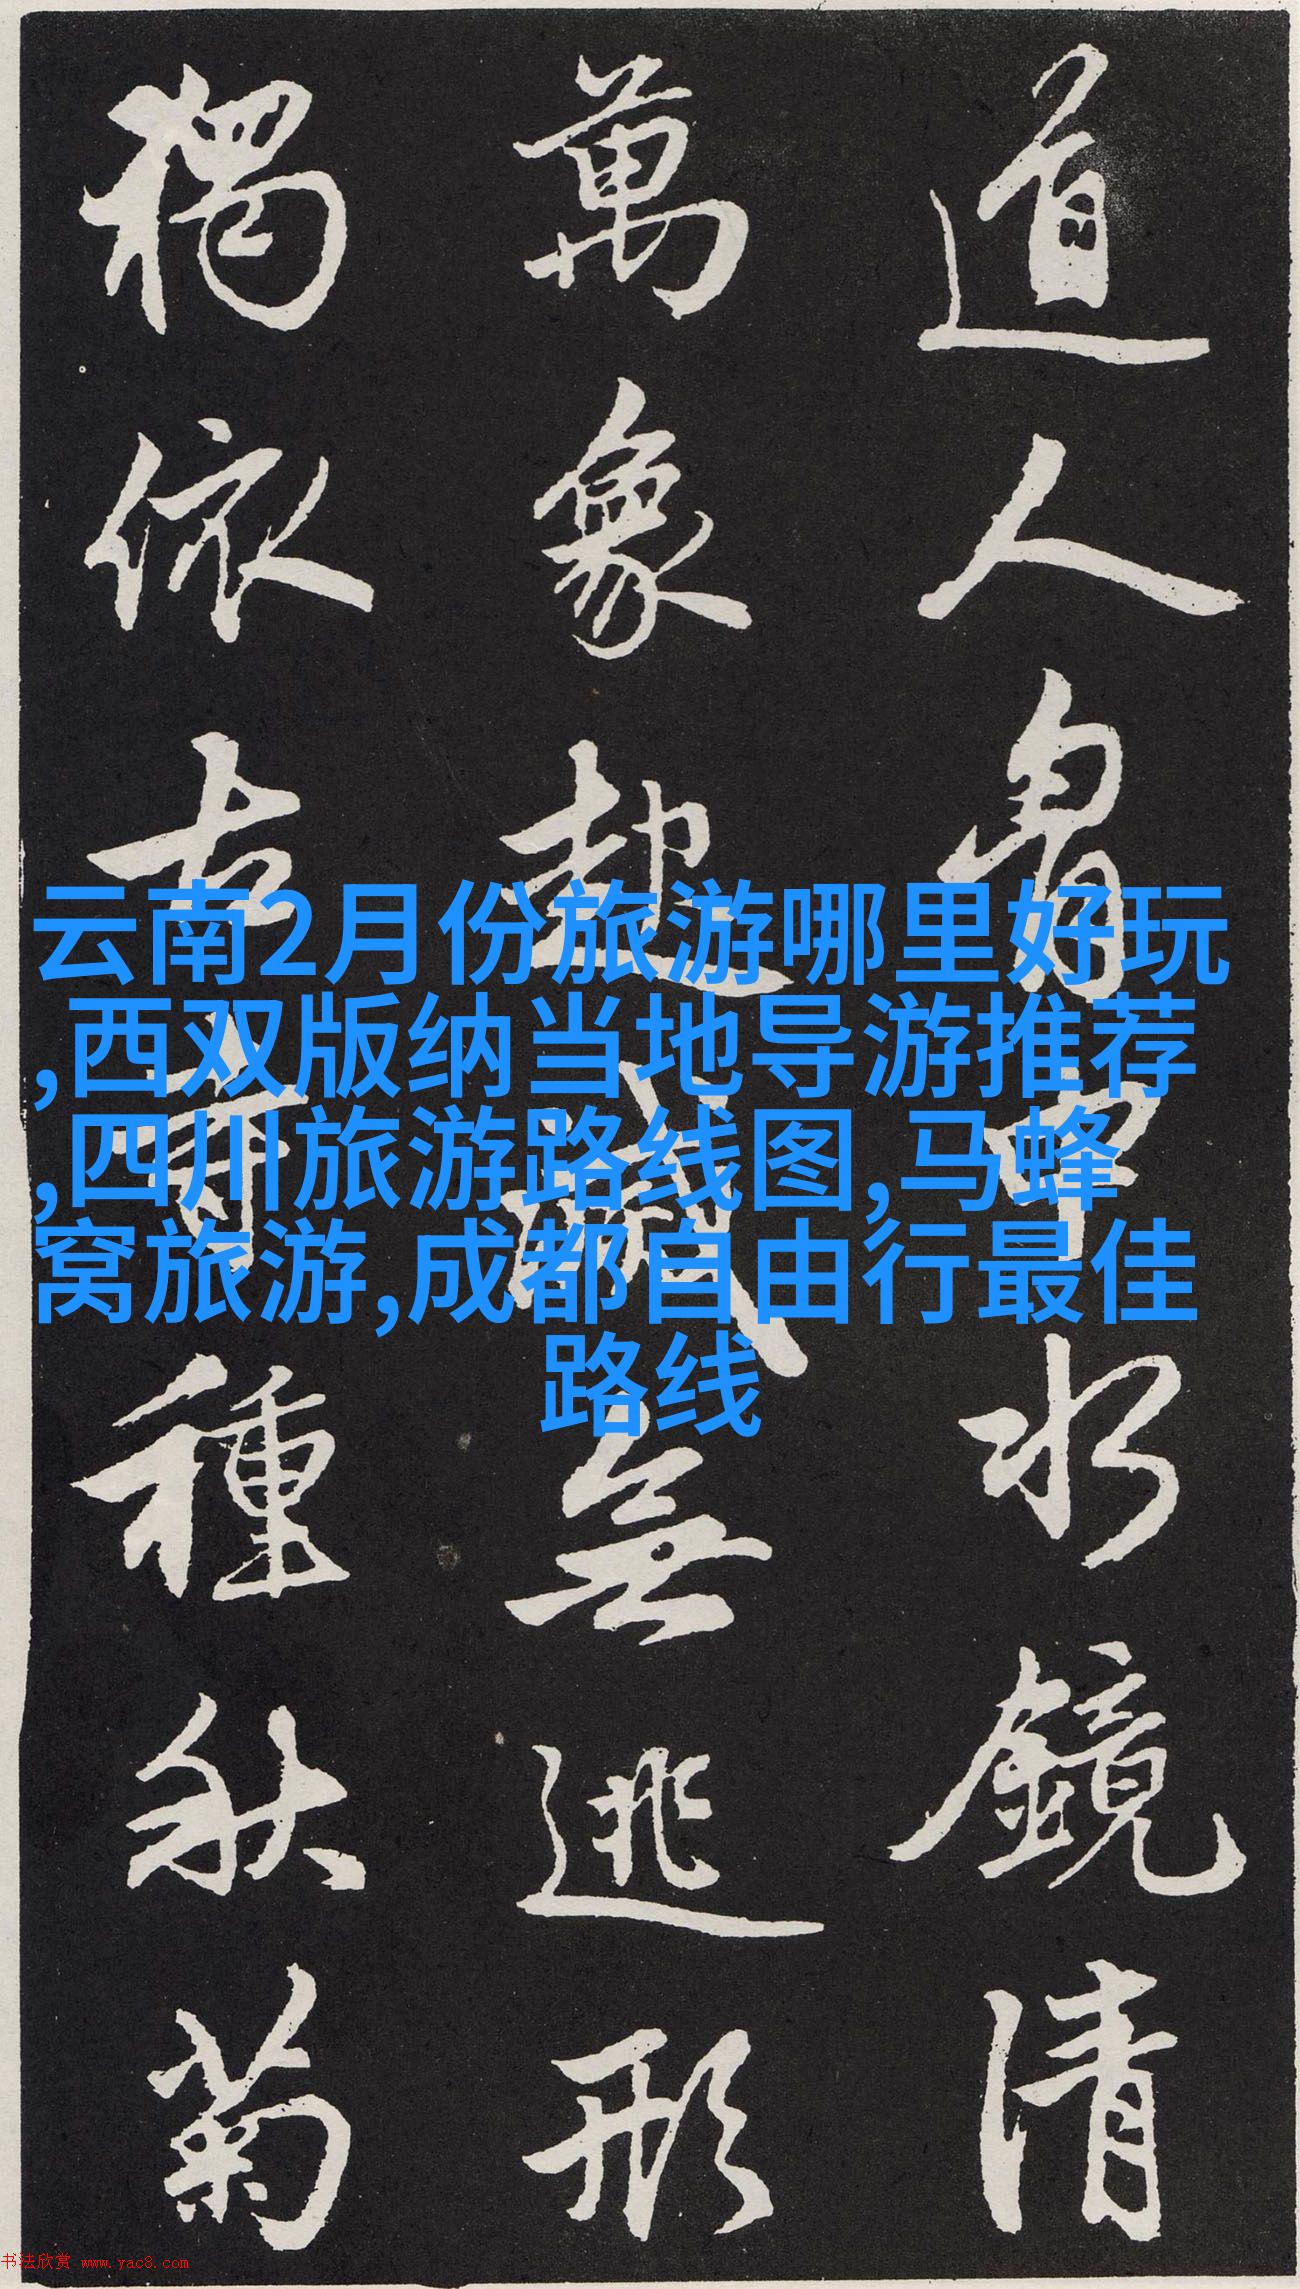 道人胷中水鏡清
萬象起滅無逃形
獨依古寺種秋菊
云南2月份旅游哪里好玩
,西双版纳当地导游推荐
,四川旅游路线图,马蜂
窝旅游,成都自由行最佳
路线
书法欣赏 www.yac8.com